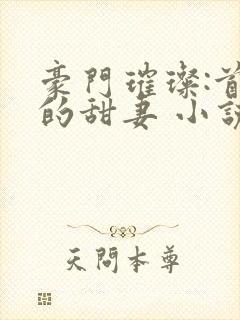 豪門璀璨:首
的甜妻 小說
天問本尊